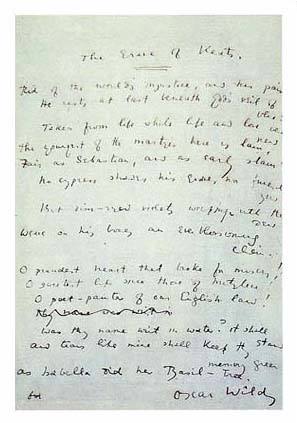 The Grave of Keats.
Rid of the world's injustice, and his pain
He rests at last beneath God's veil of
blue:
Taken from life while life and love were
new
the youngest of the martyrs here is lain,
Fair as Sebastian, and as early slain.
No cypress shades his grave, no funeral
yew
But dim-eyed violets weeping with the
dew
Weave on his bones an ever blossoming
chain.
O proudest heart that broke for misery!
O sweetest lips since those of Mitylene!
O poet-painter of our English land!
was thy name writ in water? it shall
stand
and tears like mine shall keep thy
memory green
as Isabella did her Basil-Tree.
Oscar Wilde